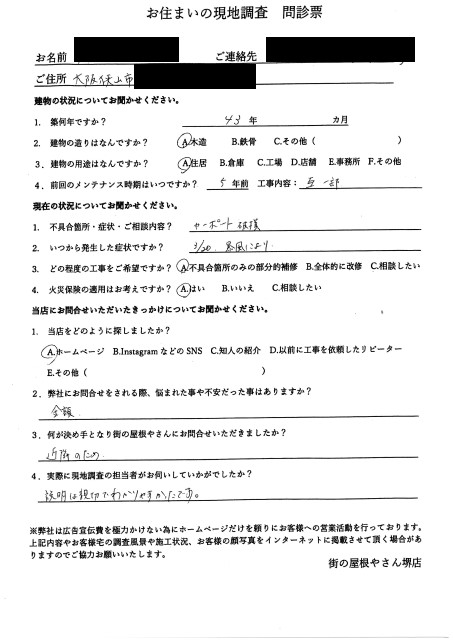 お住まいの現地調査　問診票
お名前　ご連絡先
ご住所　大阪狭山市
建物の状況についてお聞かせください。
1. 築何年ですか？　43 年　カ月
2. 建物の造りはなんですか？　A.木造　B.鉄骨　C.その他（　　）
3. 建物の用途はなんですか？　A.住居　B.倉庫　C.工場　D.店舗　E.事務所　F.その他
4. 前回のメンテナンス時期はいつですか？　5 年前　工事内容：　一部
現在の状況についてお聞かせください。
1. 不具合箇所・症状・ご相談内容？　カーポート 破損
2. いつから発生した症状ですか？　3/20 暴風により
3. どの程度の工事をご希望ですか？　A.不具合箇所のみの部分的補修　B.全体的に改修　C.相談したい
4. 火災保険の適用はお考えですか？　A.はい　B.いいえ　C.相談したい
当店にお問合せいただいたきっかけについてお聞かせください。
1. 当店をどのように探しましたか？
A.ホームページ　B.Instagram などの SNS　C.知人の紹介　D.以前に工事を依頼したリピーター
E.その他（　　）
2. 弊社にお問合せをされる際、悩まれた事や不安だった事はありますか？
金額
3. 何が決め手となり街の屋根やさんにお問合せいただきましたか？
近所のため
4. 実際に現地調査の担当者がお伺いしていかがでしたか？
説明は親切でわかりやすかたです。
※弊社は広告宣伝費を極力かけない為にホームページだけを頼りにお客様への営業活動を行っております。
上記内容やお客様宅の調査風景や施工状況、お客様の顔写真をインターネットに掲載させて頂く場合があ
りますのでご協力お願いいたします。
街の屋根やさん堺店